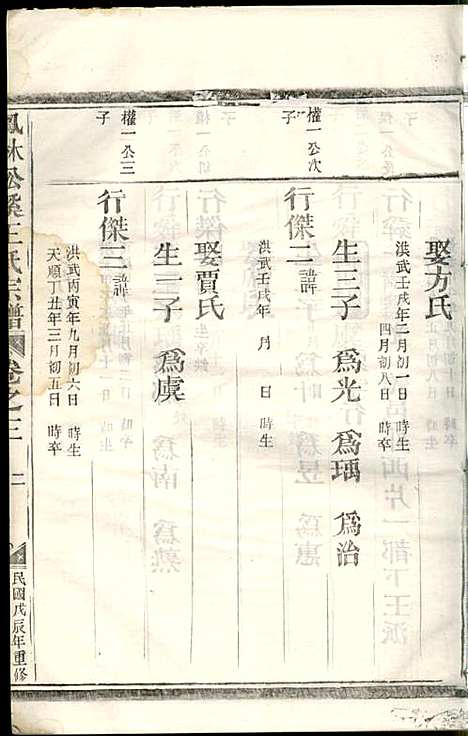 娶方氏
洪武壬戌年二月初一日 時生
四月初八日 時卒
生三子 爲光 爲瑀 爲治
權一公次子
行傑二 諱
洪武壬戌年 月 日 時生
娶賈氏
生一子 爲虞
權一公三子
行傑三 諱
洪武丙寅年九月初六日 時生
天順丁丑年三月初五日 時卒
鳳林公溪王氏宗譜 卷之三
民國戊辰年重修